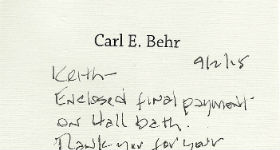 Carl E. Behr
9/2/15
Keith-
Enclosed final payment
on Hall bath.
Thank you for your